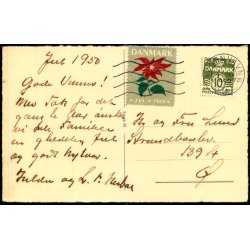 Jul 1950
Gode Venner!
Med Tak for det
gamle Aar ønsker
vi hele Familien
en glædelig Jul
og godt Nytaar.
Hulda og L. P.
DANMARK
JUL 1950
DANMARK
10
Hr og Fru Lund
Strandboulev.
139 4
Ø